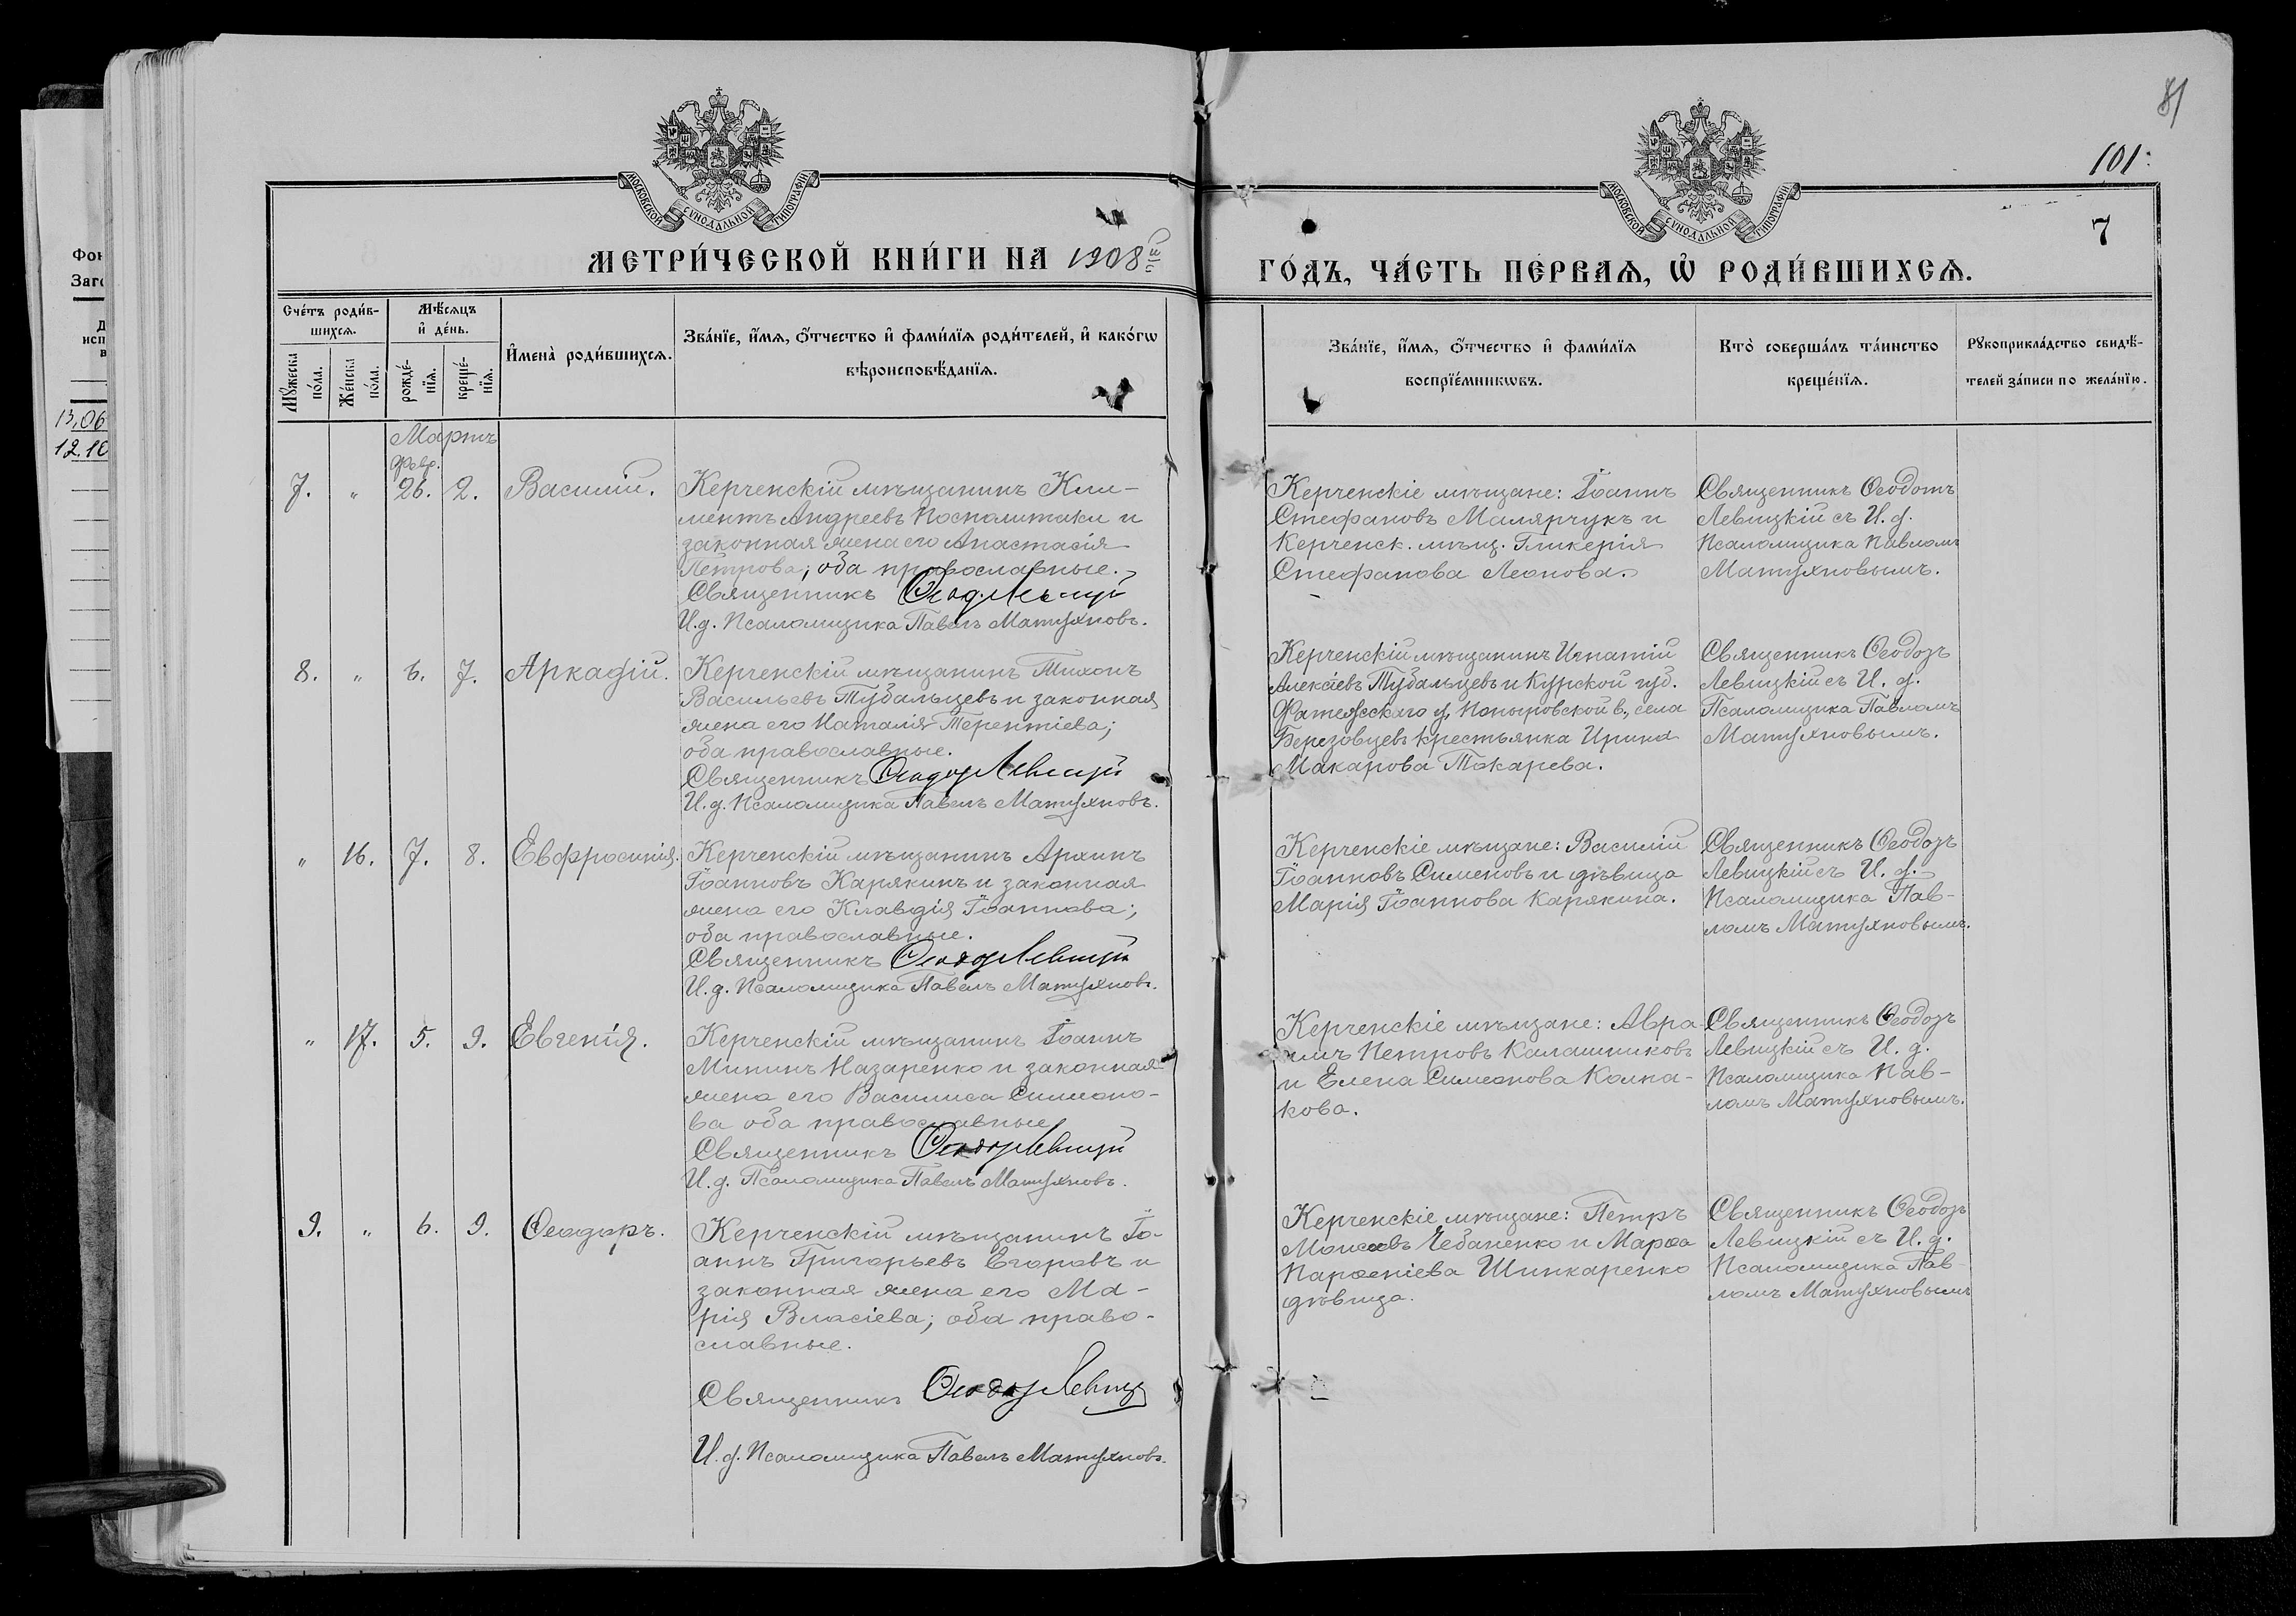 81
101
7
МОСКОВСКОЙ СУНОДАЛЬНОЙ ТИПОГРАФІИ
МОСКОВСКОЙ СУНОДАЛЬНОЙ ТИПОГРАФІИ
МЕТРИ́ЧЕСКОЙ КНИ́ГИ НА 1908й
ГО́ДЪ, ЧА́СТЬ ПЕ́РВАѦ, Ѡ҆ РОДИ́ВШИХСѦ.
Сче́тъ роди́в-
шихсѧ.
Мꙋ́жеска
по́ла.
Же́нска
по́ла.
Мѣ́сѧцъ
и҆ де́нь.
рожде́-
нїѧ.
креще́-
нїѧ.
И҆мена̀ роди́вшихсѧ.
Зва́нїе, и҆́мѧ, ѻ҆́тчество и҆ фами́лїѧ роди́телей, и҆ како́гѡ
вѣроисповѣ́данїѧ.
Зва́нїе, и҆́мѧ, ѻ҆́тчество и҆ фами́лїѧ
воспрїе́мникѡвъ.
Кто̀ соверша́лъ та́инство
креще́нїѧ.
Рꙋкоприкла́дство свидѣ́-
телей за́писи по жела́нїю.
Мартъ
февр.
7. " 26. 2. Василій.
Керченскій мѣщанинъ Кли-
ментъ Андреевъ Посполитаки и
законная жена его Анастасія
Петрова; оба православные.
Священникъ
И.д. Псаломщика Павелъ Матужновъ.
Керченскіе мѣщане: Іоаннъ
Стефановъ Малярчукъ и
Керченск. мѣщ. Гликерія
Стефанова Леонова.
Священникъ Ѳеодотъ
Левицкій съ И.д.
Псаломщика Павломъ
Матужновымъ.
8. " 6. 7. Аркадій.
Керченскій мѣщанинъ Тихонъ
Васильевъ Тубальцевъ и законная
жена его Наталія Терентіева;
оба православные.
Священникъ Ѳеодоръ Левицкій
И.д. Псаломщика Павелъ Матужновъ.
Керченскій мѣщанинъ Игнатій
Алексіевъ Тубальцевъ и Курской губ.
Фатежсскаго у, Поныровской в., села
Березовцевъ крестьянка Ирина
Макарова Токарева.
Священникъ Ѳеодоръ
Левицкій съ И. д.
Псаломщика Павломъ
Матужновымъ.
" 16. 7. 8. Евфросинія.
Керченскій мѣщанинъ Архипъ
Іоанновъ Карякинъ и законная
жена его Клавдія Іоаннова;
оба православные.
Священникъ Ѳеодоръ Левицкій
И.д. Псаломщика Павелъ Матужновъ.
Керченскіе мѣщане: Василій
Іоанновъ Сименовъ и дѣвица
Марія Іоаннова Карякина.
Священникъ Ѳеодоръ
Левицкій съ И. д.
Псаломщика Пав-
ломъ Матужновымъ.
" 17. 5. 9. Евгенія.
Керченскій мѣщанинъ Іоаннъ
Мининъ Назаренко и законная
жена его Василиса Симеоно-
ва оба православные
Священникъ Ѳеодоръ Левицкій
И.д. Псаломщика Павелъ Матужновъ.
Керченскіе мѣщане: Авра-
амъ Петровъ Калашниковъ
и Елена Симеонова Колпа-
кова.
Священникъ Ѳеодоръ
Левицкій съ И. д.
Псаломщика Пав-
ломъ Матужновымъ.
9. " 6. 9. Ѳеодоръ.
Керченскій мѣщанинъ Іо-
аннъ Григорьевъ Егоровъ и
законная жена его Ма-
рія Власіева; оба право-
славные.
Священникъ Ѳеодоръ Левиц
И.д. Псаломщика Павелъ Матужновъ.
Керченскіе мѣщане: Петръ
Моисеевъ Чебаненко и Марѳа
Парѳеніева Шинкаренко
дѣвица.
Священникъ Ѳеодоръ
Левицкій съ И. д.
Псаломщика Пав-
ломъ Матужновымъ
Фон
Заг
13,06
12.10